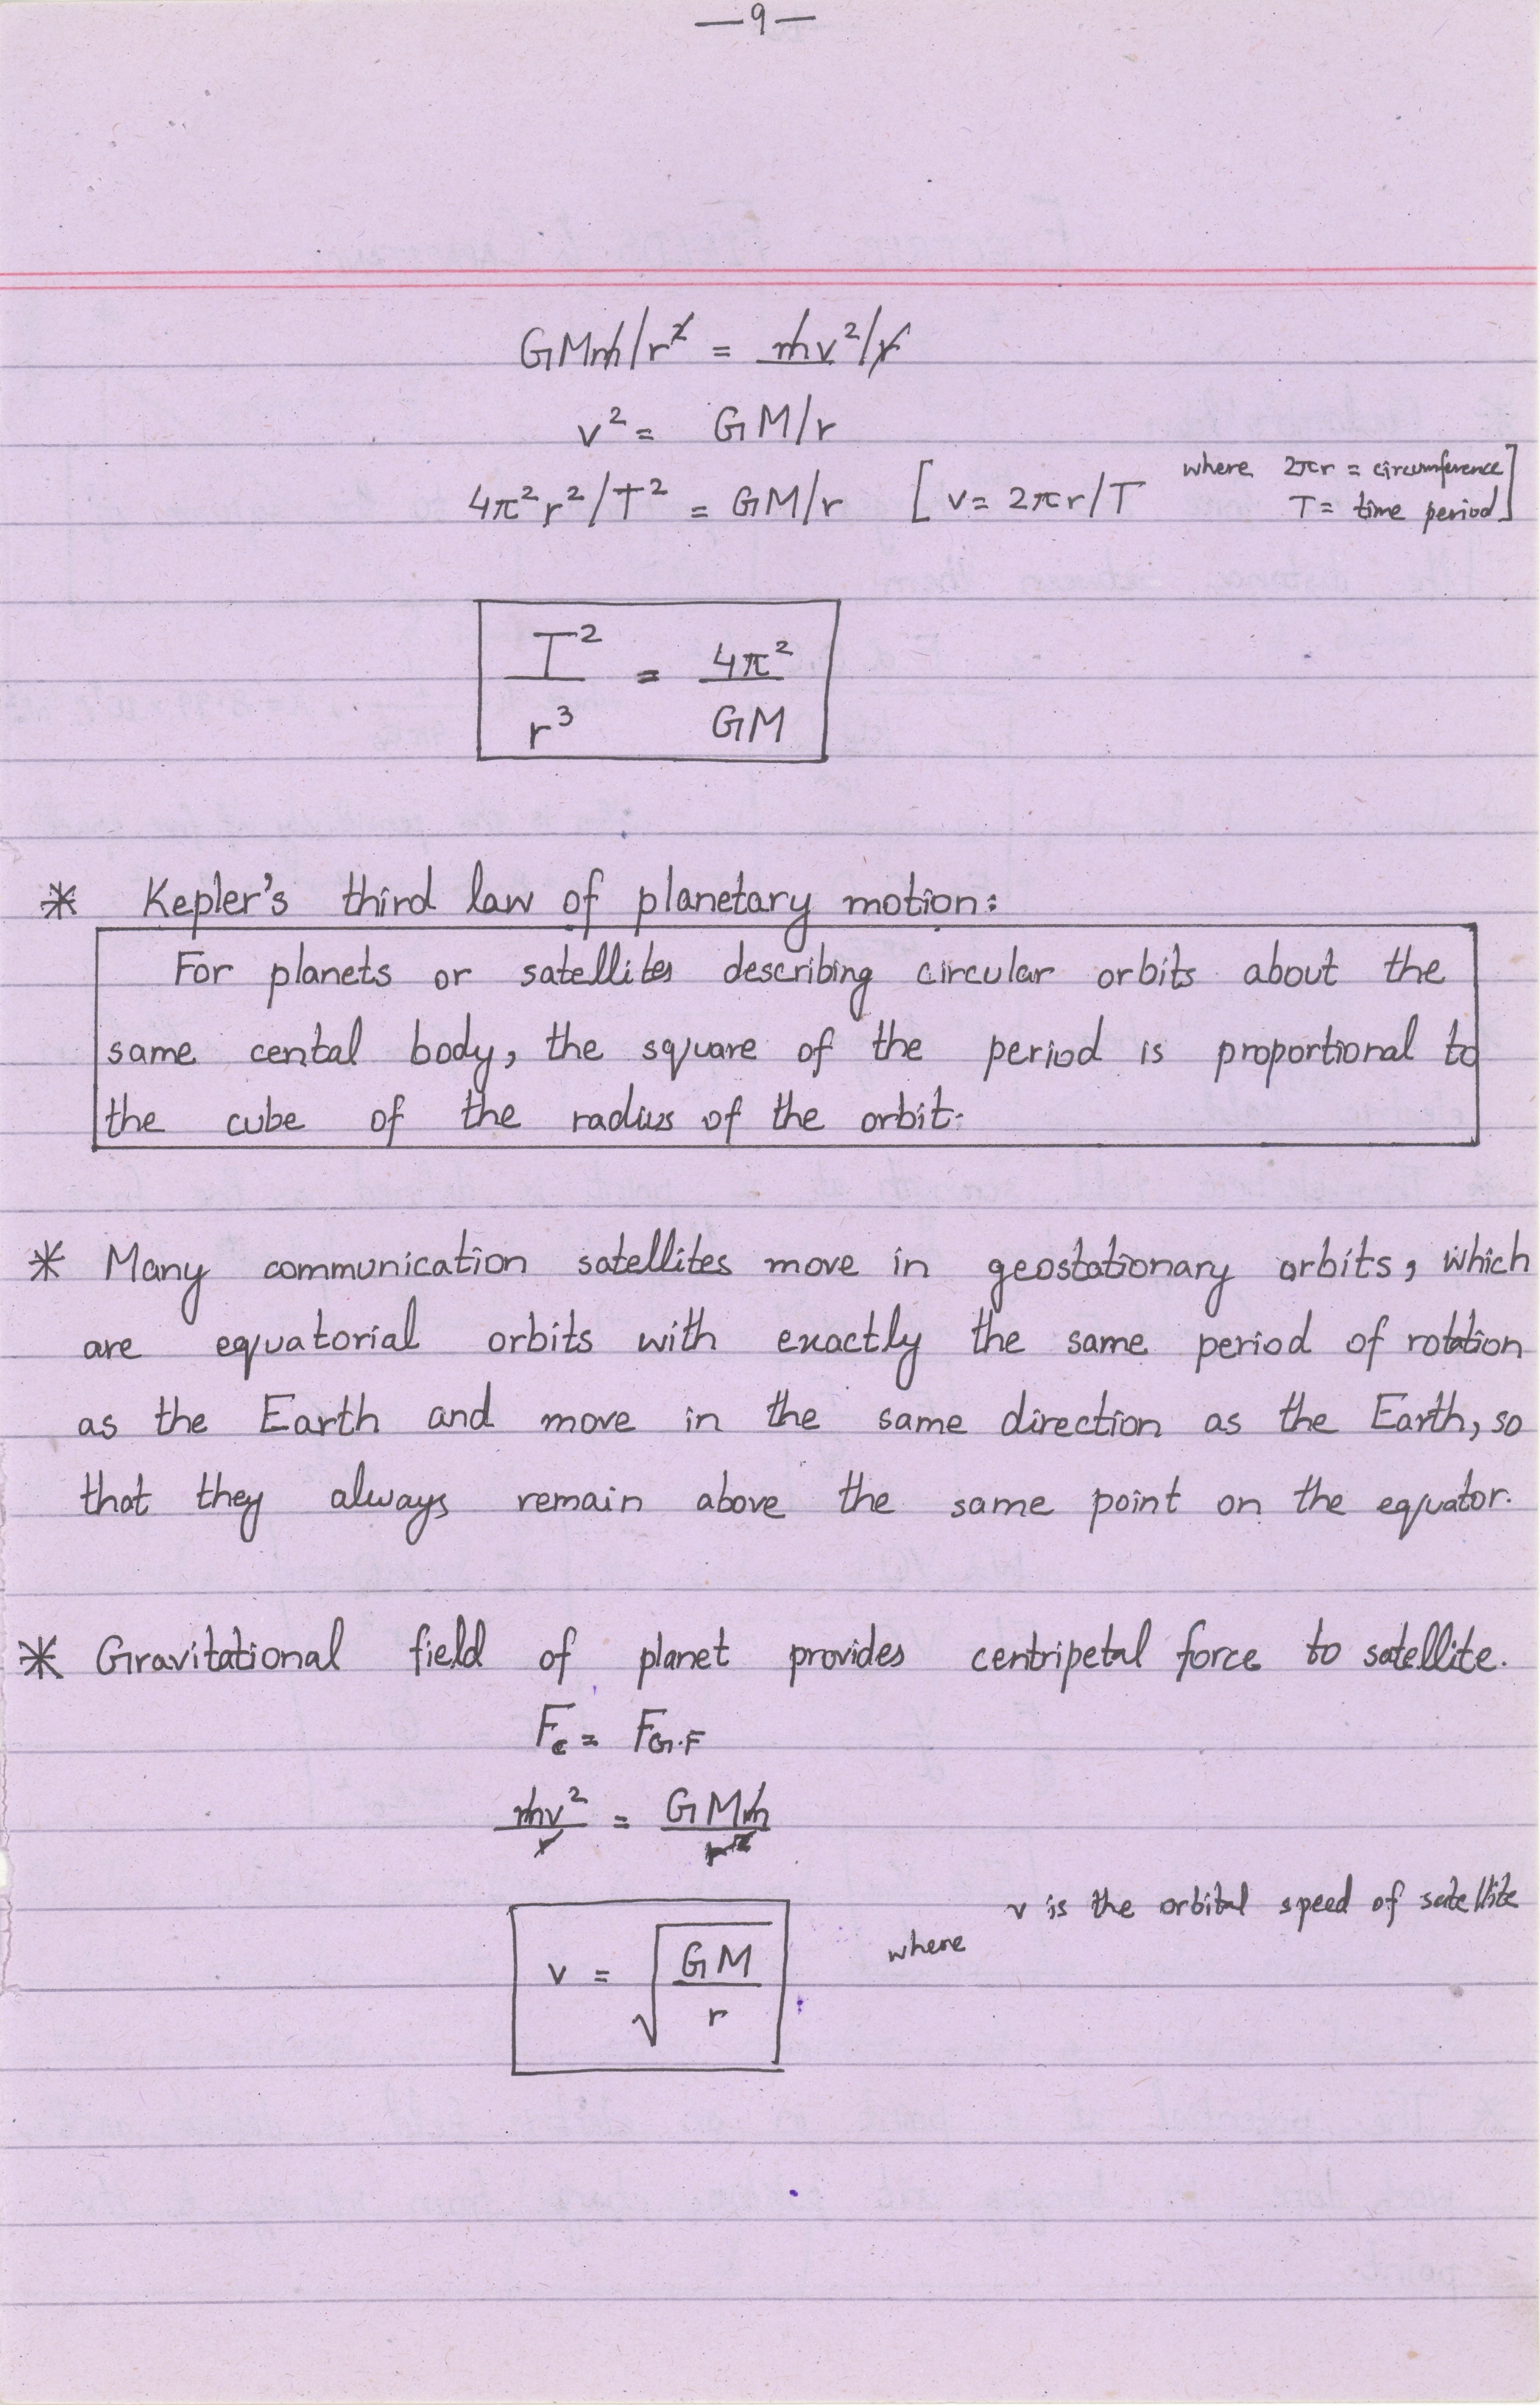 —9—
GMm/r² = mv²/r
v² = GM/r
4π²r²/T² = GM/r [v = 2πr/T where 2πr = circumference
T = time period]
T²/r³ = 4π²/GM
* Kepler's third law of planetary motion:
For planets or satellites describing circular orbits about the
same cental body, the square of the period is proportional to
the cube of the radius of the orbit.
* Many communication satellites move in geostationary orbits, which
are equatorial orbits with exactly the same period of rotation
as the Earth and move in the same direction as the Earth, so
that they always remain above the same point on the equator.
* Gravitational field of planet provides centripetal force to satellite.
Fc = FG.F
mv²/r = GMm/r²
v = √(GM/r) where v is the orbital speed of satellite